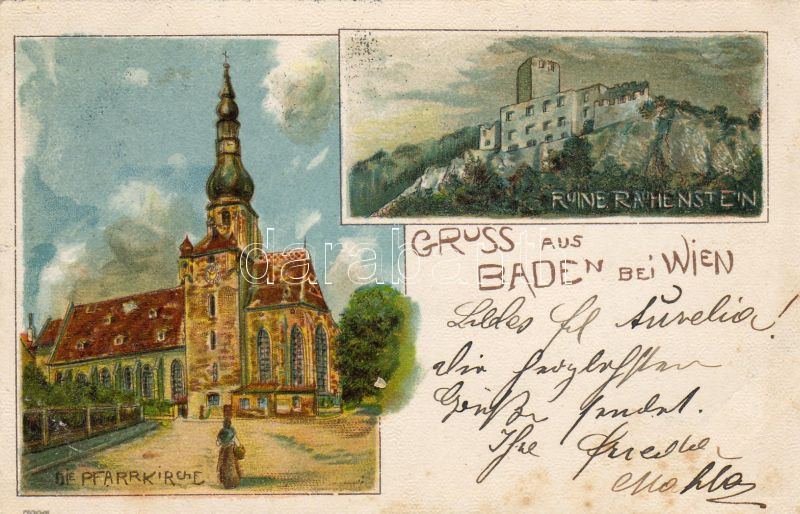 RUINE RAUHENSTEIN
GRUSS AUS
BADEN BEI WIEN
Liebes Frl Aurelia!
die herzlichsten
Grüße sendet.
Ihre
DIE PFARRKIRCHE
darabanth